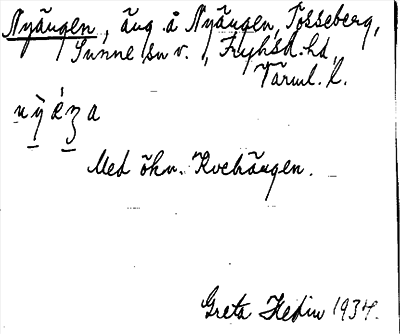 Nyängen, äng å Nyängen, Tosseberg,
Sunne sn v., Fryksd. hd,
Värml. l.
nỳéʒa
Med öhn. Kvehängen.
Greta Hedin 1934.